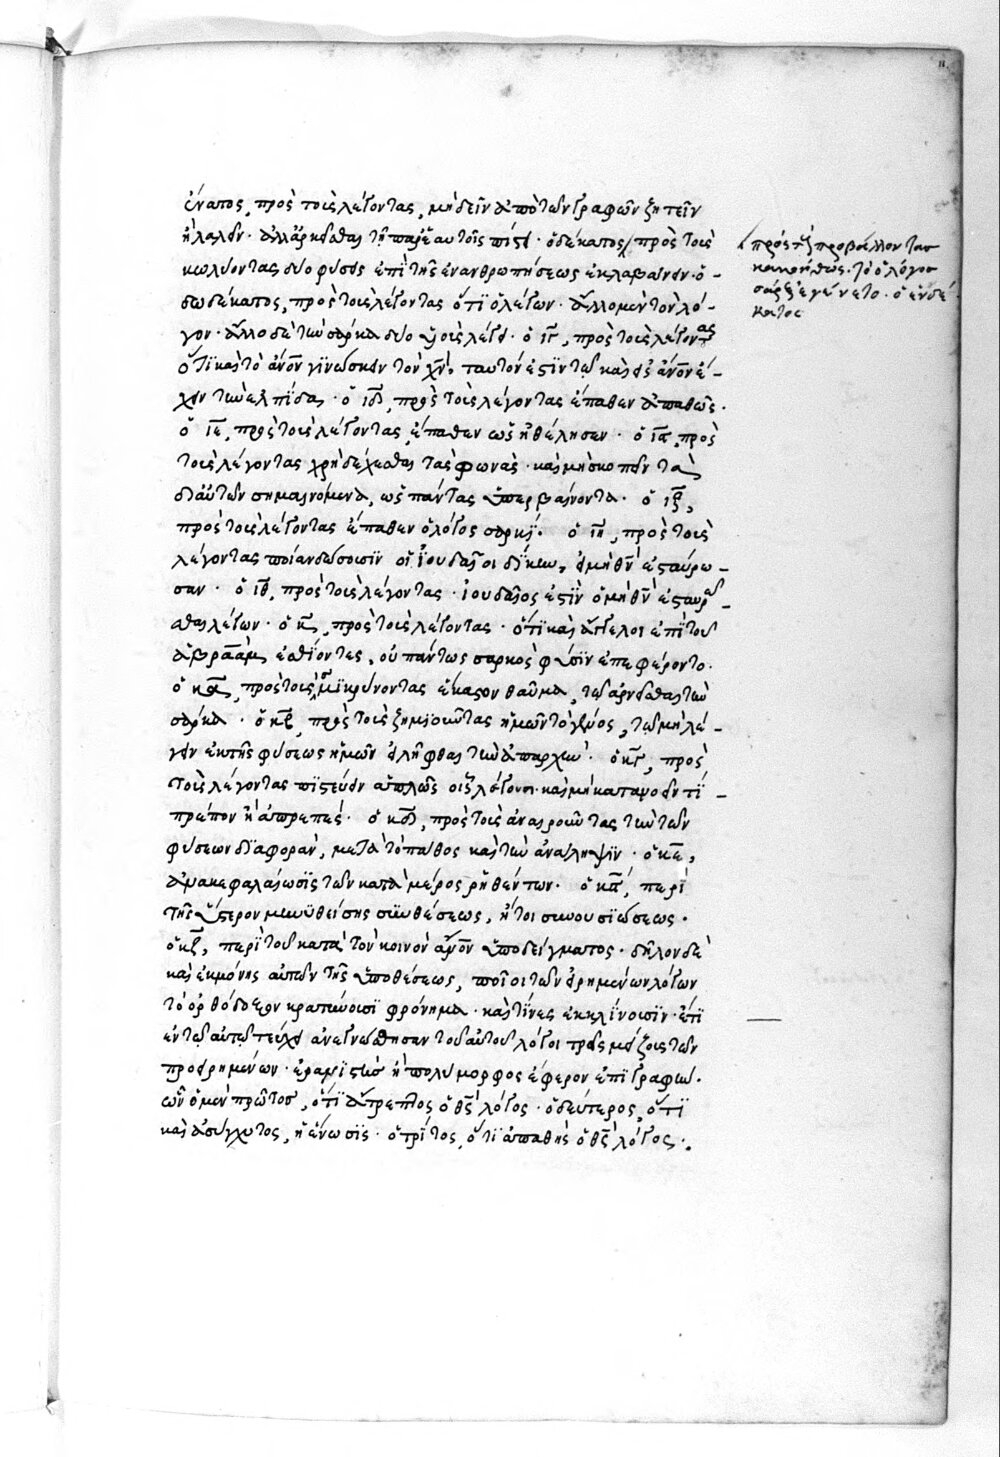 ἔνατος, πρὸς τοὺς λέγοντας, μὴ δεῖν ἀπὸ τῶν γραφῶν ζητεῖν
ἢ λαλεῖν · ἀλλ' ἀρκεῖσθαι τῇ παρ' ἑαυτοῖς πίστει · ὁ δέκατος, πρὸς τοὺς
κωλύοντας δύο φύσεις ἐπὶ τῆς ἐνανθρωπήσεως ἐκλαβαίνειν · ὁ
δωδέκατος, πρὸς τοὺς λέγοντας ὅτι ὁ λέγων · ἄλλο μὲν τὸν λό-
γον · ἄλλο δὲ τὴν σάρκα δύο υἱοὺς λέγει · ὁ ιγ, πρὸς τοὺς λέγοντας
ὅτι καὶ τὸ ἄνον γινώσκειν τὸν χν, ταυτόν ἐστιν τῷ καὶ εἰς ἄνον ἔ-
χειν τὴν ἐλπίδα · ὁ ιδ, πρὸς τοὺς λέγοντας ἔπαθεν ἀπαθῶς ·
ὁ ιε, πρὸς τοὺς λέγοντας, ἔπαθεν ὡς ἠθέλησεν · ὁ ις, πρὸς
τοὺς λέγοντας χρὴ δέχεσθαι τὰς φωνὰς · καὶ μὴ σκοπεῖν τὰ
δι αὐτῶν σημαινόμενα, ὡς πάντας ὑπερβαίνοντα · ὁ ιζ,
πρὸς τοὺς λέγοντας ἔπαθεν ὁ λόγος σαρκί · ὁ ιη, πρὸς τοὺς
λέγοντας ποίαν δώσουσιν οἱ ἰουδαῖοι δίκην, εἰ μὴ θν ἐσταύρω-
σαν · ὁ ιθ, πρὸς τοὺς λέγοντας · ἰουδαῖος ἐστὶν ὁ μὴ θν ἐσταυρῶ-
σθαι λέγων · ὁ κ, πρὸς τοὺς λέγοντας · ὅτι καὶ ἄγγελοι ἐπὶ τοῦ
ἀβραὰμ ἐσθίοντες, οὐ πάντως σαρκὸς φύσιν ἐπεφέροντο ·
ὁ κα, πρὸς τοὺς μικρύνοντας ἕκαστον θαῦμα, τῷ ἀρνεῖσθαι τὴν
σάρκα · ὁ κβ, πρὸς τοὺς ζημιοῦντας ἡμῶν τὸ γένος, τῷ μὴ λέ-
γειν ἐκ τῆς φύσεως ἡμῶν εἰλῆφθαι τὴν ἀπαρχήν · ὁ κγ, πρὸς
τοὺς λέγοντας πιστεύειν ἁπλῶς οἷς λέγουσι · καὶ μὴ κατανοεῖν τί
πρέπον ἢ ἀπρεπές · ὁ κδ, πρὸς τοὺς ἀναιροῦντας τὴν τῶν
φύσεων διαφορὰν, μετὰ τὸ πάθος καὶ τὴν ἀνάληψιν · ὁ κε,
ἀνακεφαλαίωσις τῶν κατὰ μέρος ῥηθέντων · ὁ κς, περὶ
τῆς ὕστερον μυηθείσης συνθέσεως, ἤτοι συνουσιώσεως ·
ὁ κζ, περὶ τοῦ κατὰ τὸν κοινὸν ἄνον ὑποδείγματος · δῆλον δὲ
καὶ ἐκ μόνης αὐτῶν τῆς ὑποθέσεως, ποῖοι τῶν εἰρημένων λόγων
τὸ ὀρθόδοξον κρατύνουσι φρόνημα · καὶ τίνες ἐκκλίνουσιν · ἔτι
ἐν τῷ αὐτῷ τεύχει ἀνεγνώσθησαν τοῦ αὐτοῦ λόγοι τρεῖς μείζους τῶν
προειρημένων · ἐρανιστὴς ἢ πολύμορφος ἔφερον ἐπιγραφὴν ·
ὧν ὁ μὲν πρῶτος, ὅτι ἄτρεπτος ὁ θς λόγος · ὁ δεύτερος, ὅτι
καὶ ἀσύγχυτος, ἡ ἕνωσις · ὁ τρίτος, ὅτι ἀπαθὴς ὁ θς λόγος ·
πρὸς τοὺς προβάλλοντας
κακοήθως · τὸ ὁ λόγος
σὰρξ ἐγένετο · ὁ ἑνδέ
κατος